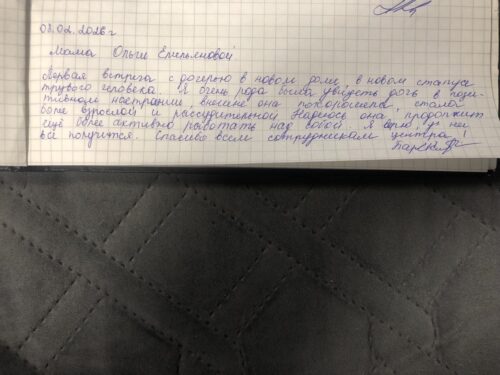 08.02.2026 г
Мама Ольги Емельяновой
Первая встреча с дочерью в новом доме, в новом статусе
трезвого человека. Я очень рада была увидеть дочь в пози-
тивном настроении, внешне она похорошела, стала
более взрослой и рассудительной. Надеюсь она, продолжит
ещё более активно работать над собой. Я верю, у неё
всё получится. Спасибо всем сотрудникам центра!